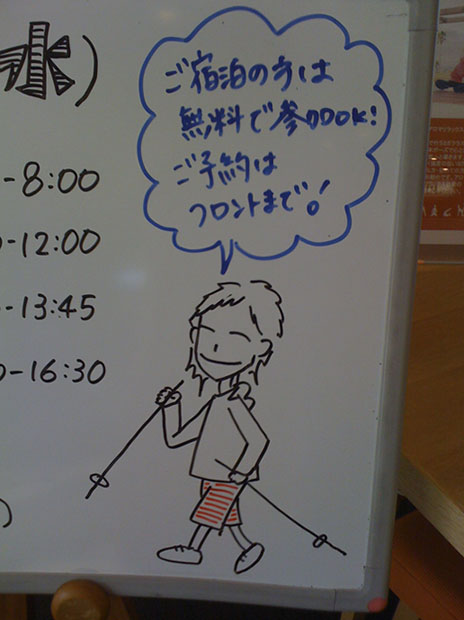 水)
ご宿泊の方は
無料で参加OK!
ご予約は
フロントまで!
-8:00
-12:00
-13:45
-16:30
)